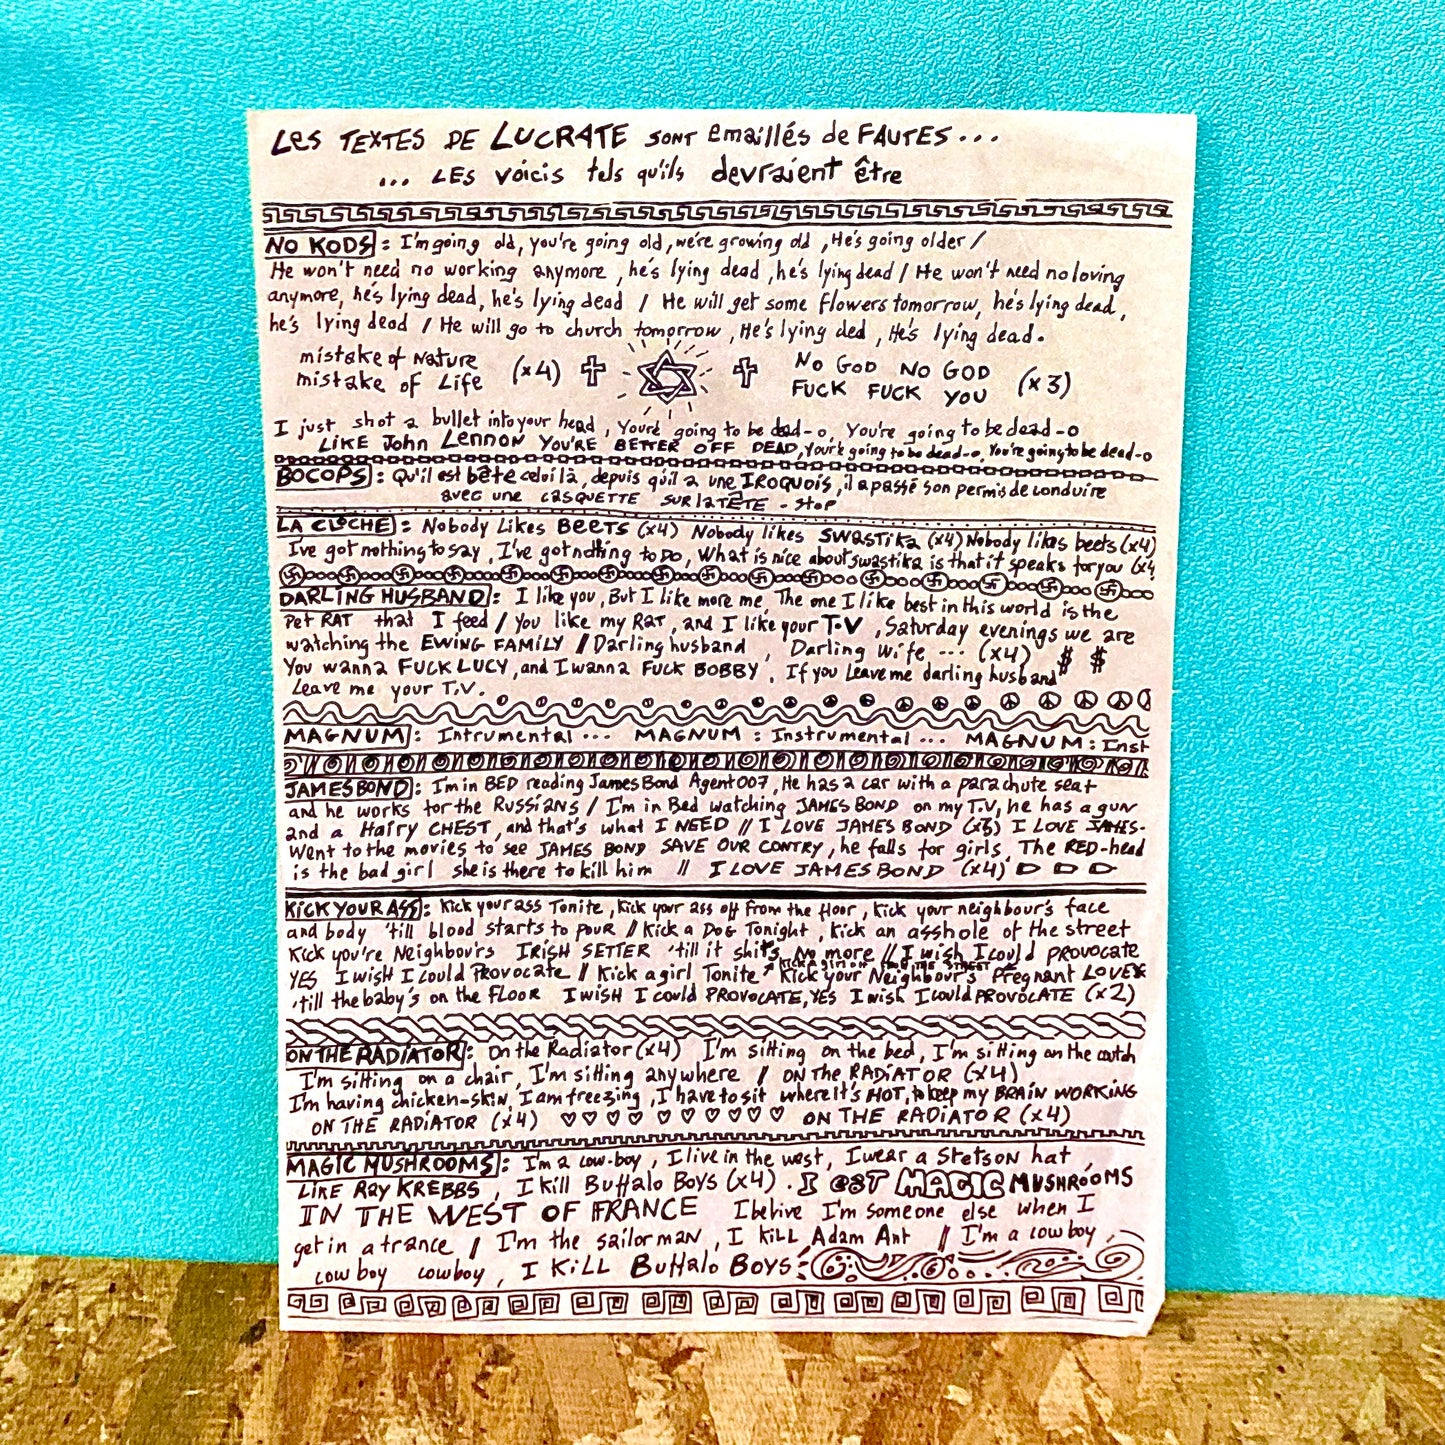 Les TEXTES DE LUCRATE SONT emaillés de FAUTES...
... LES voicis tels qu'ils devraient être
NO KODS : I'm going old, you're going old, we're growing old, He's going older /
He won't need no working anymore, he's lying dead, he's lying dead / He won't need no loving
anymore, he's lying dead, he's lying dead / He will get some flowers tomorrow, he's lying dead,
he's lying dead / He will go to church tomorrow, He's lying ded, He's lying dead.
mistake of Nature
mistake of Life (x4)
NO GOD NO GOD
FUCK FUCK YOU (x3)
I just shot a bullet into your head, You're going to be dead-o, You're going to be dead-o
LIKE John Lennon YOU'RE BETTER OFF DEAD, You're going to be dead-o, You're going to be dead-o
BOCOPS : Qu'il est bête celui là, depuis qu'il a une IROQUOIS, il a passé son permis de conduire
avec une CASQUETTE SUR la TÊTE - Stop
LA CLOCHE : Nobody Likes BEETS (x4) Nobody likes SWASTIKA (x4) Nobody likes beets (x4)
I've got nothing to say, I've got nothing to DO, What is nice about swastika is that it speaks for you (x4
DARLING HUSBAND : I like you, But I like more me, The one I like best in this world is the
pet RAT that I feed / You like my RAT, and I like your T.V, Saturday evenings we are
watching the EWING FAMILY // Darling husband, Darling wife ... (x4) $ $
You wanna FUCK LUCY, and I wanna FUCK BOBBY, If you Leave me darling husband
Leave me your T.V.
MAGNUM : Intrumental ... MAGNUM : Instrumental ... MAGNUM : Inst
JAMES BOND : I'm in BED reading James Bond Agent 007, He has a car with a parachute seat
and he works for the RUSSIANS / I'm in Bed watching JAMES BOND on my T.V, he has a gun
and a HAIRY CHEST, and that's what I NEED // I LOVE JAMES BOND (x3) I LOVE JAMES-
Went to the movies to see JAMES BOND SAVE OUR CONTRY, he falls for girls, The RED-head
is the bad girl she is there to kill him // I LOVE JAMES BOND (x4)
KICK YOUR ASS : Kick your ass Tonite, Kick your ass off from the floor, Kick your neighbour's face
and body 'till blood starts to pour // Kick a DOG Tonight, Kick an asshole of the street
Kick you're Neighbours IRISH SETTER 'till it shits No more // I wish I could PROVOCATE
YES I wish I could PROVOCATE // Kick a girl Tonite Kick your Neighbour's Pregnant LOVE
'till the baby's on the FLOOR I WISH I could PROVOCATE, YES I wish I could PROVOCATE (x2)
ON THE RADIATOR : On the Radiator (x4) I'm sitting on the bed, I'm sitting on the coutch
I'm sitting on a chair, I'm sitting anywhere / ON THE RADIATOR (x4)
I'm having chicken-skin, I am freezing, I have to sit where It's HOT, to keep my BRAIN WORKING
ON THE RADIATOR (x4) ♡♡♡♡ ♡♡♡♡♡♡♡ ON THE RADIATOR (x4)
MAGIC MUSHROOMS : I'm a cow-boy, I live in the west, I wear a Stetson hat
LIKE RAY KREBBS, I kill Buffalo Boys (x4). I eat MAGIC MUSHROOMS
IN THE WEST OF FRANCE I belive I'm someone else when I
get in a trance // I'm the sailor man, I KILL Adam Ant // I'm a cowboy,
cowboy cowboy, I KILL Buffalo Boys